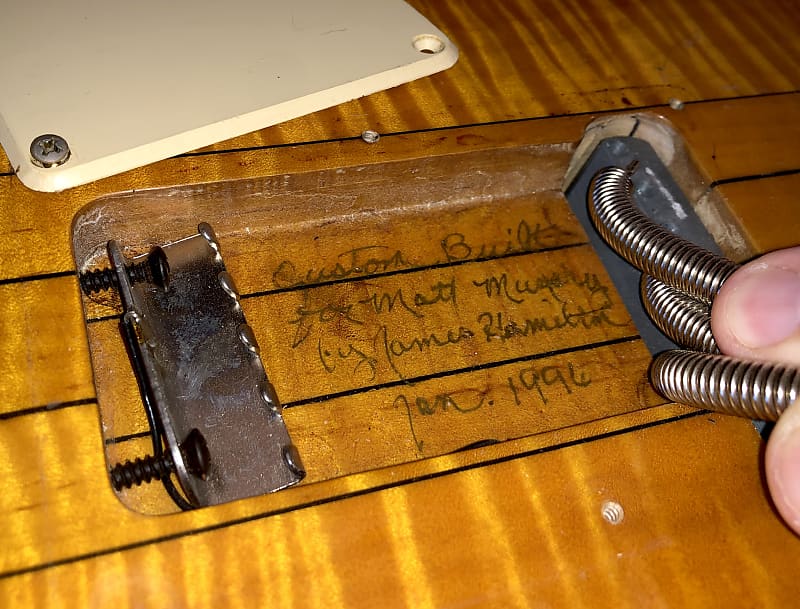 Custom Built
for Matt Murphy
by James Hamilton
Jan. 1996